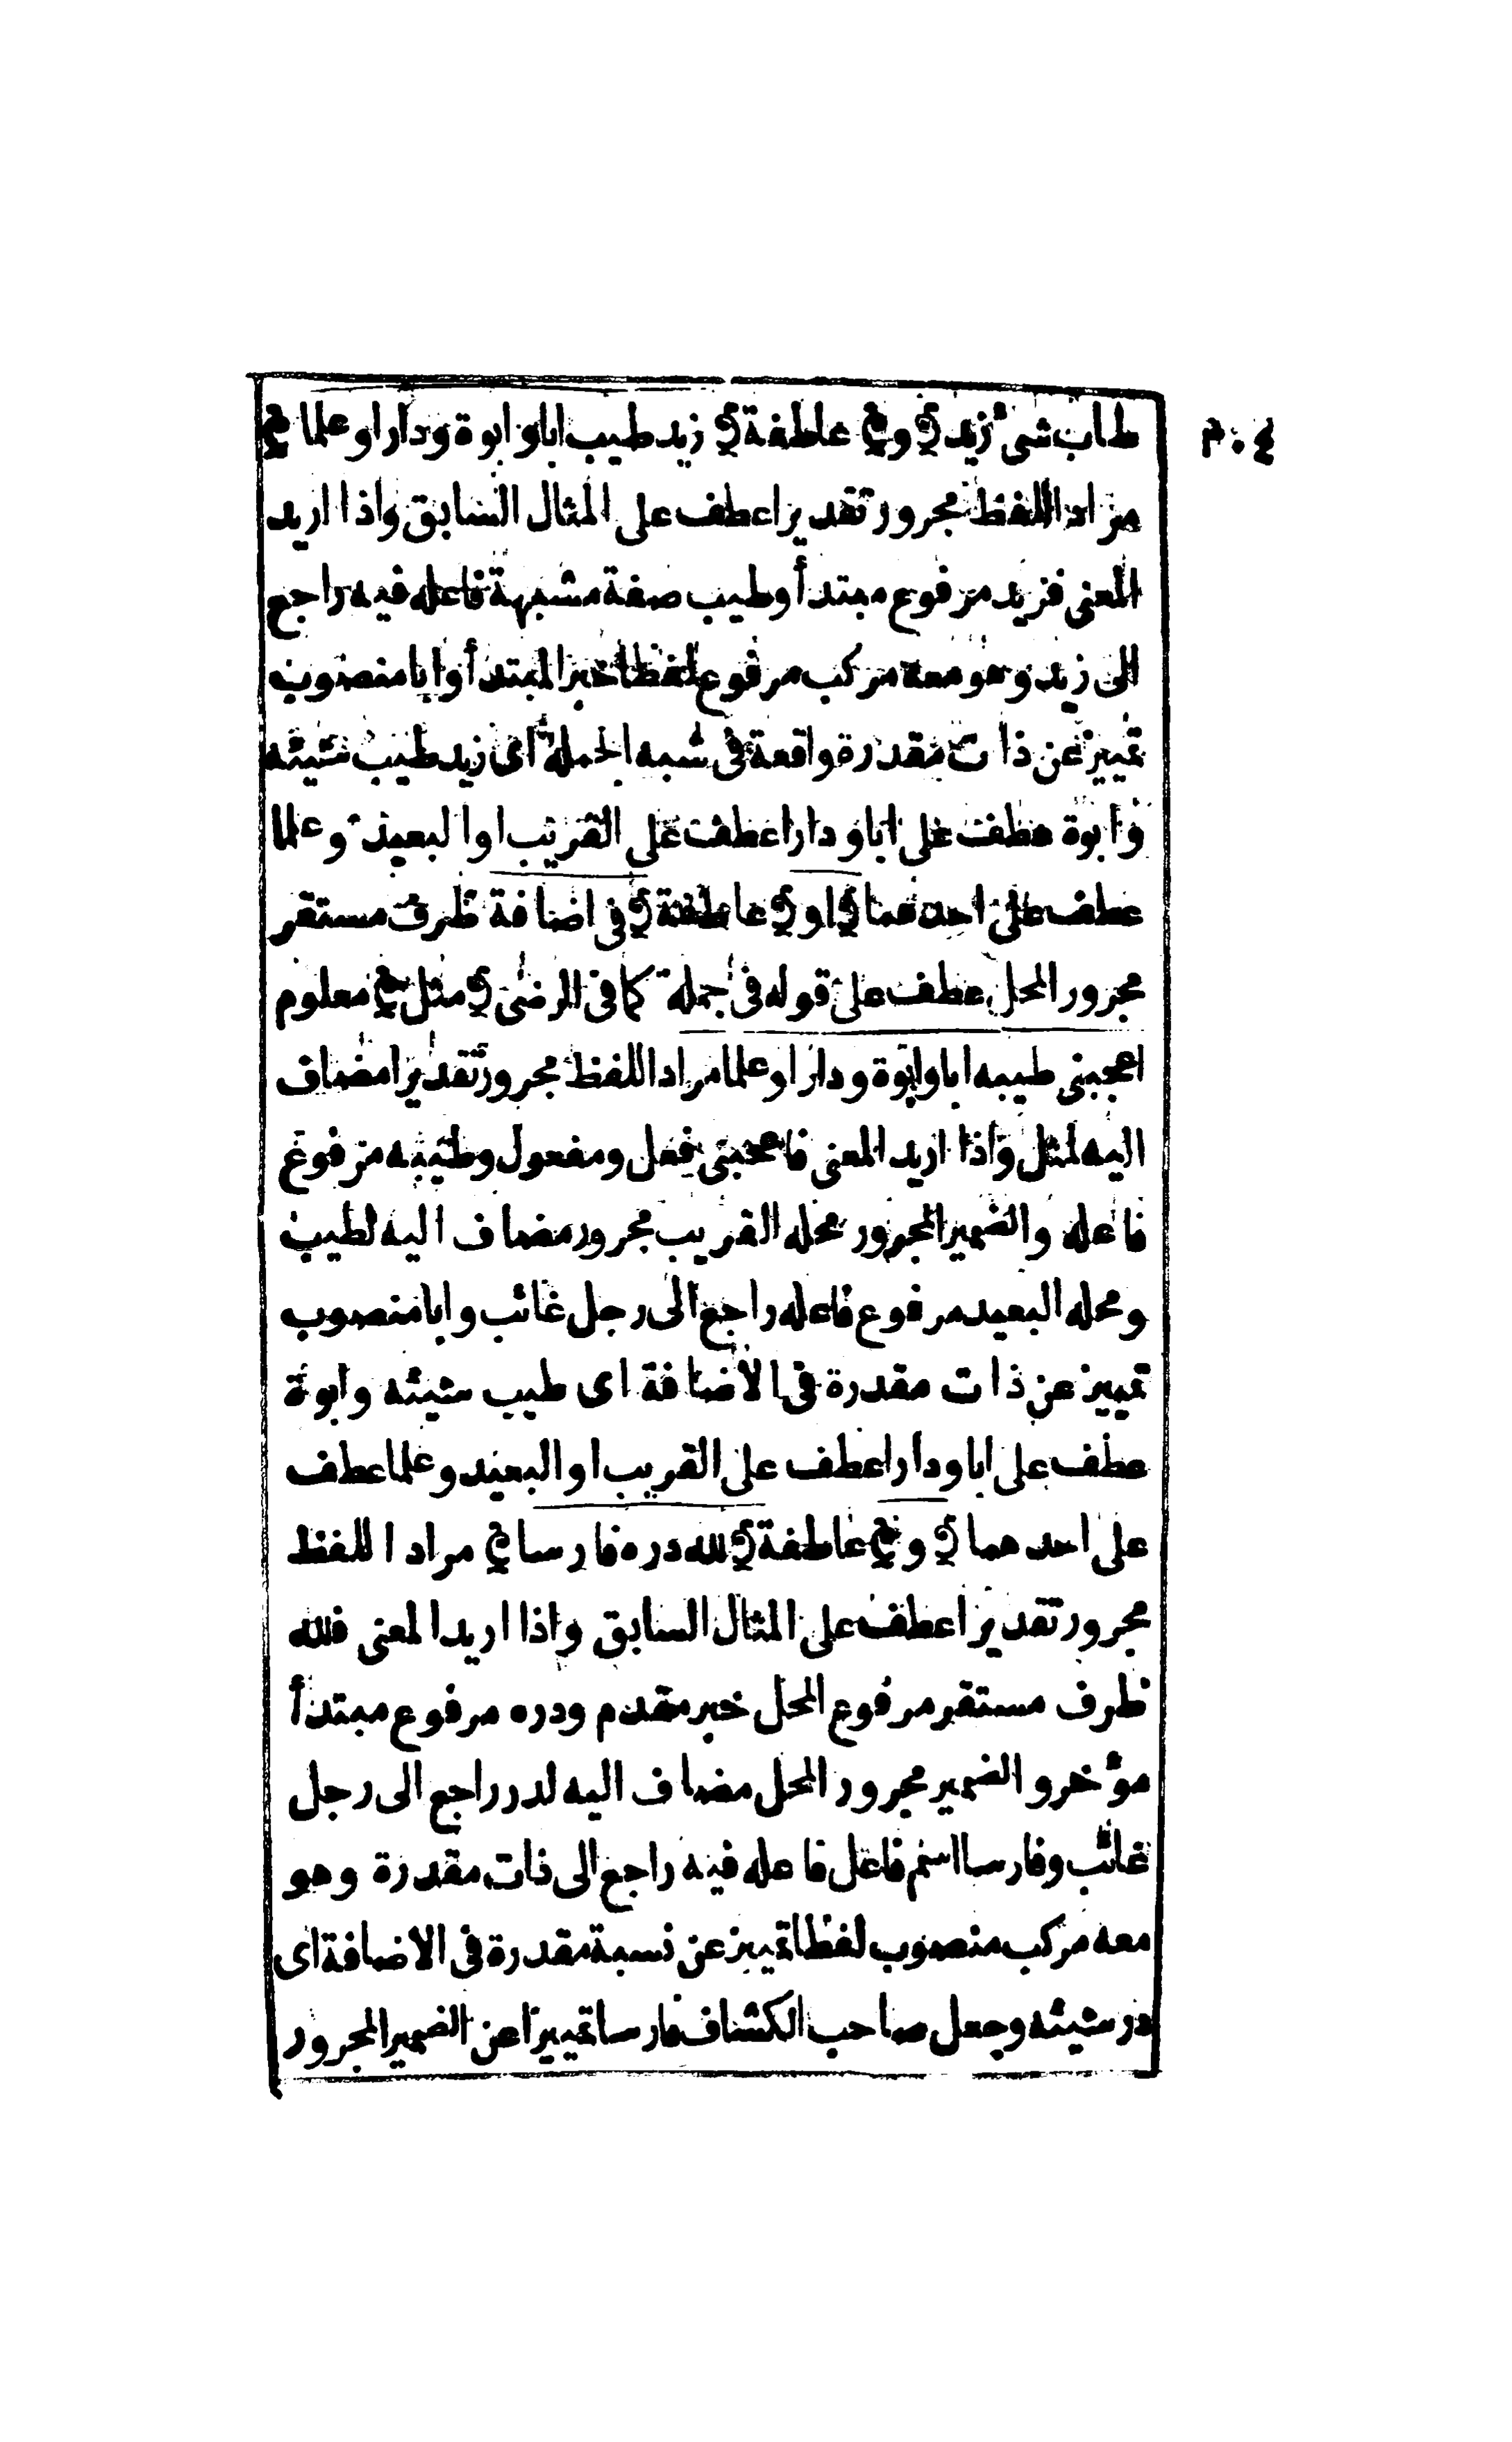 ٤٠٣
طاب شئ زيد ﴿ و ﴾ عاطفة ﴿ زيد طيب ابا وابوة ودارا وعلما ﴾
مراد اللفظ مجرور تقديرا عطف على المثال السابق واذا اريد
المعنى فزيد مرفوع مبتدأ وطيب صفة مشبهة فاعله فيه راجع
الى زيد وهو معه مركب مرفوع لفظا خبر المبتدأ وابا منصوب
تمييز عن ذات مقدرة واقعة فى شبه الجملة اى زيد طيب شيئه
وابوة عطف على ابا ودارا عطف على القريب او البعيد وعلما
عطف على احدهما ﴿ او ﴾ عاطفة ﴿ فى اضافة ظرف مستقر
مجرور المحل عطف على قوله فى جملة كما فى الرضى ﴿ مثل ﴾ معلوم
اعجبنى طيبه ابا وابوة ودارا وعلما مراد اللفظ مجرور تقديرا مضاف
اليه لمثل واذا اريد المعنى فاعجبنى فعل ومفعول وطيبه مرفوع
فاعله والضمير المجرور محله القريب مجرور مضاف اليه لطيب
ومحله البعيد مرفوع فاعله راجع الى رجل غائب وابا منصوب
تمييز عن ذات مقدرة فى الاضافة اى طيب شيئه وابوة
عطف على ابا ودارا عطف على القريب او البعيد وعلما عطف
على احدهما ﴿ و ﴾ عاطفة ﴿ لله دره فارسا ﴾ مراد اللفظ
مجرور تقديرا عطف على المثال السابق واذا اريد المعنى فلله
ظرف مستقر مرفوع المحل خبر مقدم ودره مرفوع مبتدأ
مؤخر والضمير مجرور المحل مضاف اليه لدر راجع الى رجل
غائب وفارسا اسم فاعل فاعله فيه راجع الى ذات مقدرة وهو
معه مركب منصوب لفظا تمييز عن نسبة مقدرة فى الاضافة اى
در شيئه وجعل صاحب الكشاف فارسا تمييزا عن الضمير المجرور